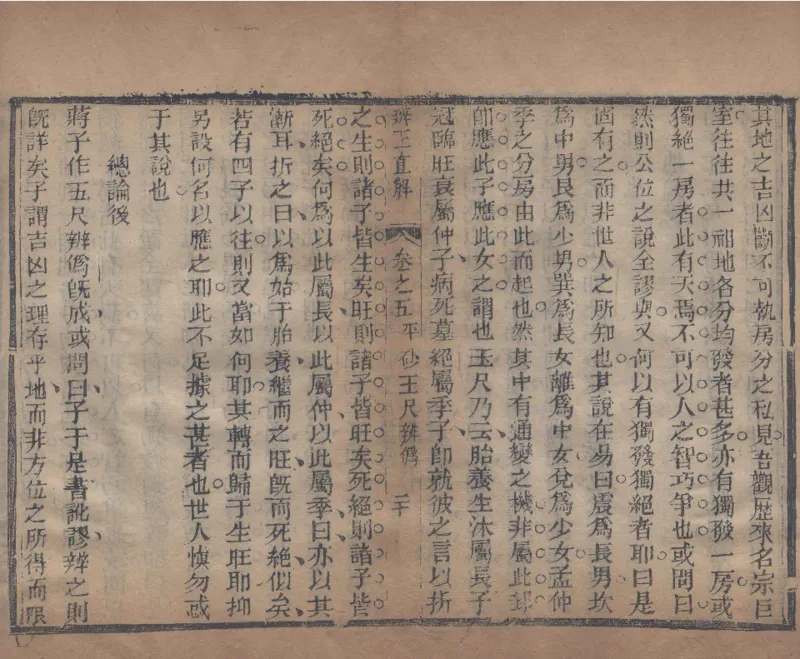 其地之吉凶斷不可執房分之私見吾觀歷來名宗巨
室往往共一祖地各分均發者甚多亦有獨發一房或
獨絕一房者此有天焉不可以人之智巧爭也或問曰
然則公位之說全謬與又何以有獨發獨絕者耶曰是
固有之而非世人之所知也其說在易曰震爲長男坎
爲中男艮爲少男巽爲長女離爲中女兌爲少女孟仲
季之分房由此而起也然其中有通變之機非屬此卦
卽應此子應此女之謂也玉尺乃云胎養生沐屬長子
冠臨旺衰屬仲子病死墓絕屬季子卽就彼之言以折
辨正直解 卷之五 平砂玉尺辨僞 二十
之生則諸子皆生矣旺則諸子皆旺矣死絕則諸子皆
死絕矣何爲以此屬長以此屬仲以此屬季曰亦以其
漸耳折之曰以爲始于胎養繼而之旺旣而死絕似矣
若有四子以往則又當如何耶其轉而歸于生旺耶抑
另設何名以應之耶此不足據之甚者也世人愼勿惑
于其說也
總論後
蔣子作玉尺辨僞旣成或問曰子于是書訿謬辨之則
旣詳矣子謂吉凶之理存乎地而非方位之所得而限